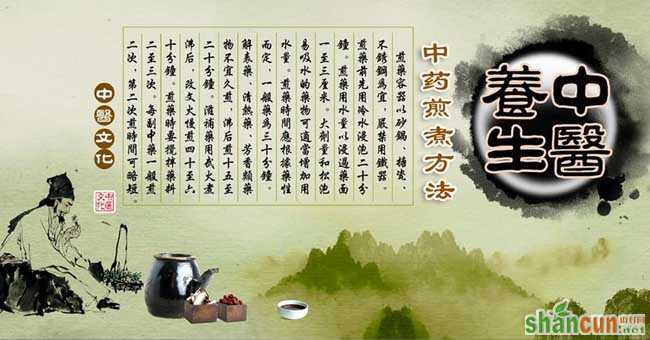 中醫
養生
中药煎煮方法
煎藥容器以砂鍋、搪瓷、
不銹鋼爲宜，嚴禁用鐵器。
煎藥前先用冷水浸泡二十分
鐘。煎藥用水量以浸過藥面
一至三厘米。大劑量和松泡
易吸水的藥物可適當增加用
水量。煎藥時間應根據藥性
而定，一般藥爲三十分鐘。
解表藥、清熱藥、芳香類藥
物不宜久煎，沸后煎十五至
二十分鐘。滋補藥用武火煮
沸后，改文火慢煎四十至六
十分鐘。煎藥時要攪拌藥料
二至三次。每副中藥一般煎
二次，第二次煎時間可略短。
中醫文化
shancun
山村网
.net